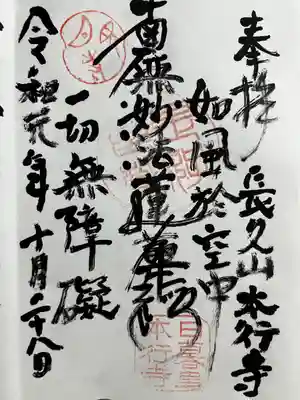 奉拝 長久山 本行寺
如風於空中
南無妙法蓮華経
一切無障礙
令和元年 十月二十八日
月見寺
本行寺